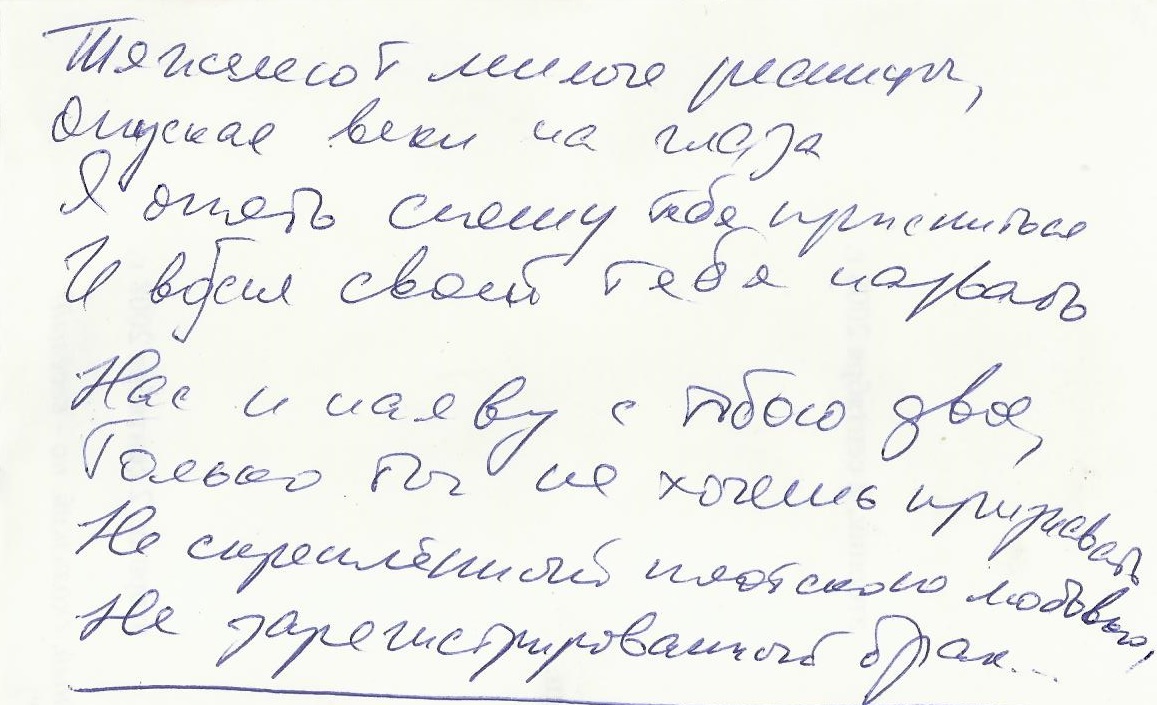 Тяжелеют милые ресницы,
Опуская веки на глаза
Я опять спешу тебе присниться
И во сне своей тебя назвать
Нас и наяву с тобою двое,
Только ты не хочешь признавать
Не скреплённый плотскою любовью,
Не зарегистрированный брак...